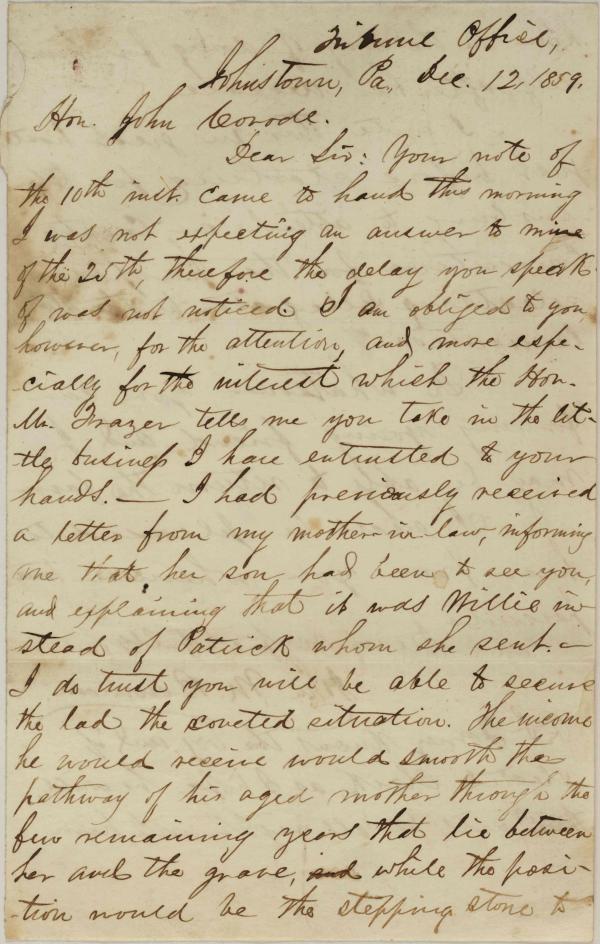 Tribune Office,
Johnstown, Pa., Dec. 12, 1859.
Hon. John Covode.
Dear Sir: Your note of
the 10th inst. came to hand this morning
I was not expecting an answer to mine
of the 25th, therefore the delay you speak
of was not noticed I am obliged to you,
however, for the attention, and more espe-
cially for the interest which the Hon.
Mr. Frazer tells me you take in the lit-
tle business I have entrusted to your
hands. — I had previously received
a letter from my mother-in-law, informing
me that her son had been to see you,
and explaining that it was Willie in
stead of Patrick whom she sent. —
I do trust you will be able to secure
the lad the coveted situation. The income
he would receive would smooth the
pathway of his aged mother through the
few remaining years that lie between
her and the grave, and while the posi-
tion would be the stepping stone to